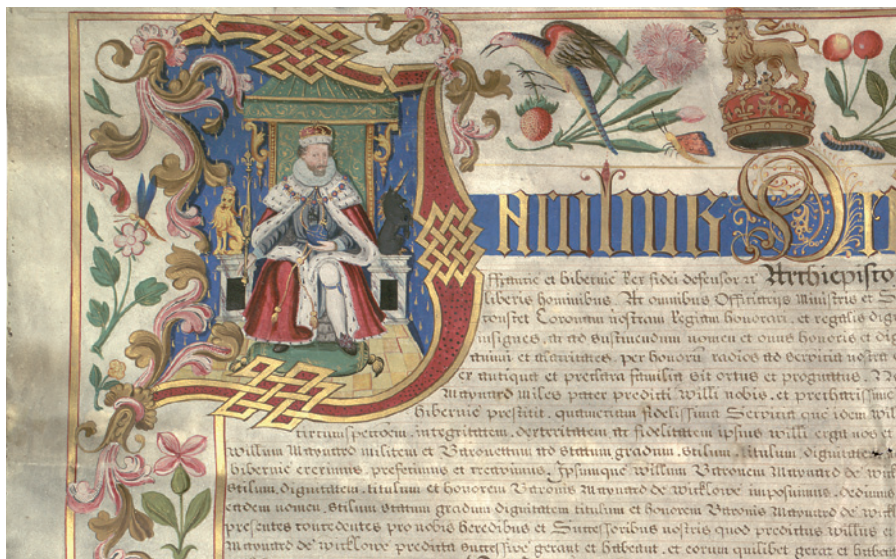 Jacobus
ffrancie et hibernie Rex fidei defensor &c Archiepisco
liberis hominibus. Ac omnibus Officiarijs Ministris et S
constet Coronam nostram Regiam honorari, et regalis dig
insignes, ac ad sustinendum nomen et onus honoris et dig
animi et alacritates, per honorũ radios ad servitia nostra
ex antiqua et preclara familia sit ortus et prognatus.
Maynard miles pater predicti Willi nobis, et precharissim
hibernie prestitit, quametiam fidelissima Servitia que idem Wil
circumspectionem, integritatem, dexteritatem ac fidelitatem ipsius Willi erga nos et
Willum Maynard militem et Baronettum ad statum gradum, stilum, titulum, dignitatem
hibernie ereximus, preferimus et creavimus. Ipsumque Willum Baronem Maynard de Wick
stilum, dignitatem, titulum et honorem Baronis Maynard de Wicklowe imposuimus, dedimus
eadem nomen, stilum statum gradum dignitatem titulum et honorem Baronis Maynard de Wickl
presentes concedentes pro nobis heredibus et Successoribus nostris quod predictus Willus
Maynard de Wicklowe predicta successive gerant et habeant, et eorum quilibet gerat et habe